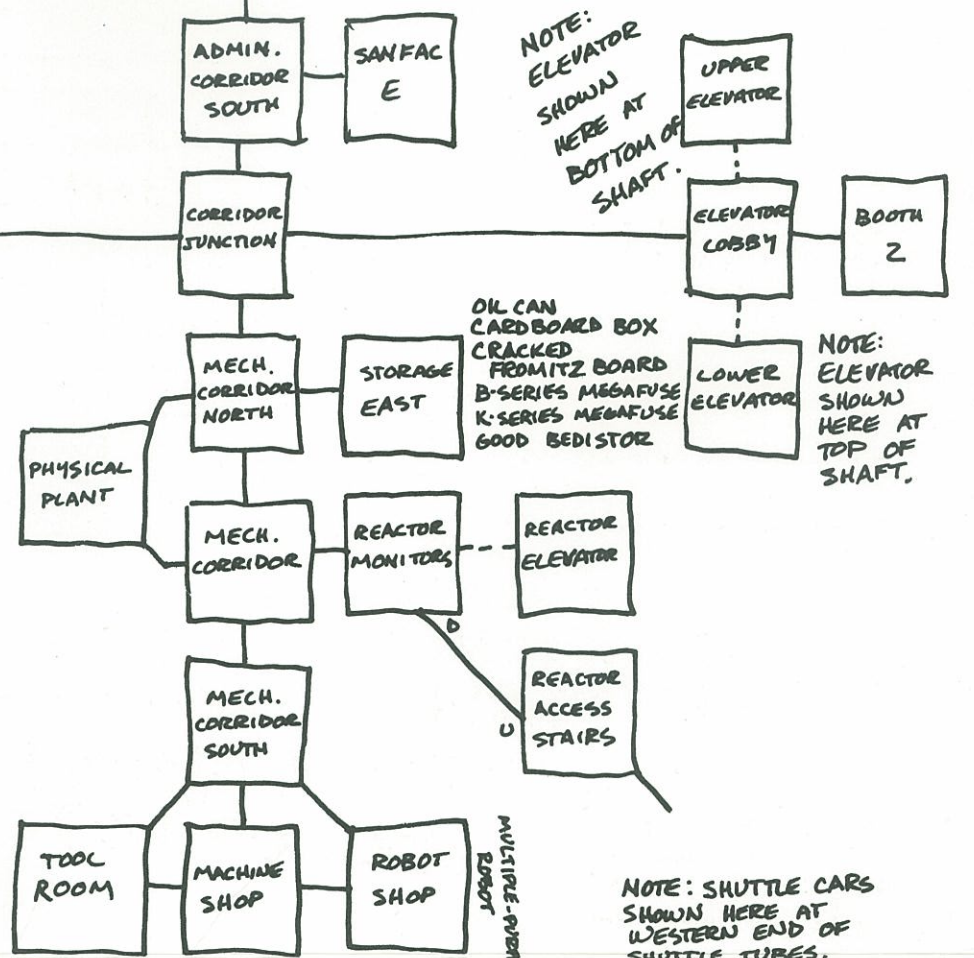 ADMIN.
CORRIDOR
SOUTH
SANFAC
E
NOTE:
ELEVATOR
SHOWN
HERE AT
BOTTOM OF
SHAFT.
UPPER
ELEVATOR
CORRIDOR
JUNCTION
ELEVATOR
LOBBY
BOOTH
2
MECH.
CORRIDOR
NORTH
STORAGE
EAST
OIL CAN
CARDBOARD BOX
CRACKED
FROMITZ BOARD
B-SERIES MEGAFUSE
K-SERIES MEGAFUSE
GOOD BEDISTOR
LOWER
ELEVATOR
NOTE:
ELEVATOR
SHOWN
HERE AT
TOP OF
SHAFT.
PHYSICAL
PLANT
MECH.
CORRIDOR
REACTOR
MONITORS
REACTOR
ELEVATOR
D
U
REACTOR
ACCESS
STAIRS
MECH.
CORRIDOR
SOUTH
TOOL
ROOM
MACHINE
SHOP
ROBOT
SHOP
MULTIPLE-PURP
ROBOT
NOTE: SHUTTLE CARS
SHOWN HERE AT
WESTERN END OF
SHUTTLE TUBES.